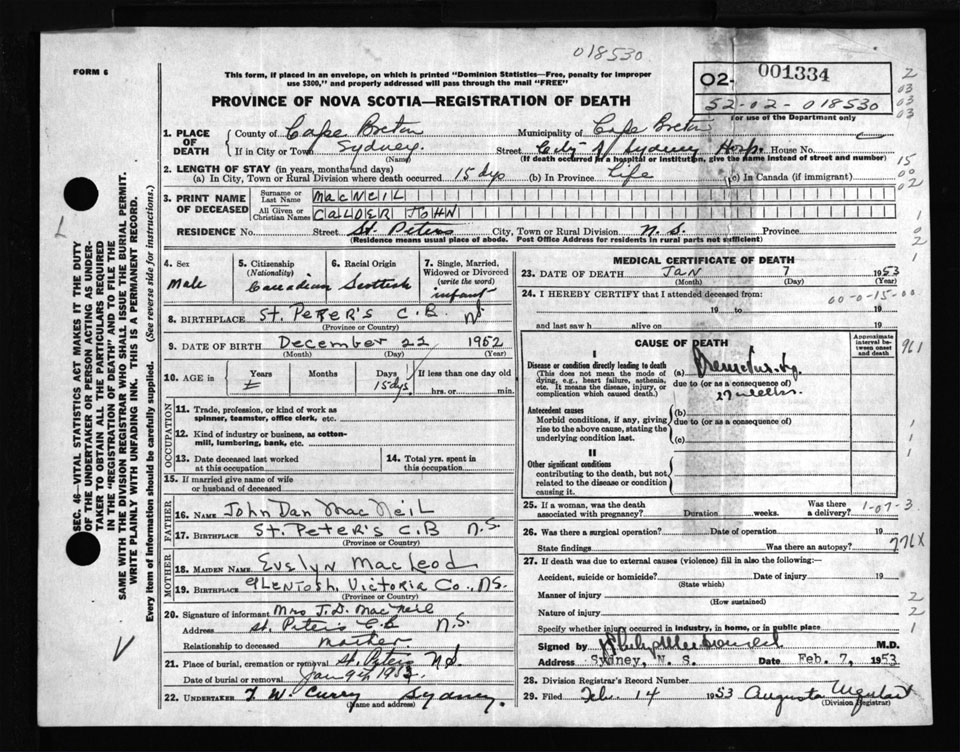 018530
FORM 6
This form, if placed in an envelope, on which is printed "Dominion Statistics—Free, penalty for improper
use $300," and properly addressed will pass through the mail "FREE"
O2- 001334
52-02-018530
For use of the Department only
PROVINCE OF NOVA SCOTIA—REGISTRATION OF DEATH
2
03
03
03
1. PLACE OF DEATH
County of Cape Breton Municipality of Cape Breton
If in City or Town Sydney. Street City of Sydney Hosp. House No.
(Name) (If death occurred in a hospital or institution, give the name instead of street and number)
2. LENGTH OF STAY (in years, months and days)
(a) In City, Town or Rural Division where death occurred 15 dys (b) In Province Life (c) In Canada (if immigrant)
15
00
02
3. PRINT NAME OF DECEASED
Surname or Last Name MacNEIL
All Given or Christian Names CALDER JOHN
RESIDENCE No. Street St. Peters City, Town or Rural Division N.S. Province
(Residence means usual place of abode. Post Office Address for residents in rural parts not sufficient)
1
02
02
4. Sex
Male
5. Citizenship
(Nationality)
Canadian
6. Racial Origin
Scottish
7. Single, Married,
Widowed or Divorced
(write the word)
infant
8. BIRTHPLACE St. PETER'S C.B. NS
(Province or Country)
9. DATE OF BIRTH December 22 1952
(Month) (Day) (Year)
10. AGE in
Years
Months
Days
15 dys
If less than one day old
hrs. or min.
OCCUPATION
11. Trade, profession, or kind of work as
spinner, teamster, office clerk, etc.
12. Kind of industry or business, as cotton-
mill, lumbering, bank, etc.
13. Date deceased last worked
at this occupation
14. Total yrs. spent in
this occupation
15. If married give name of wife
or husband of deceased
FATHER
16. NAME John Dan MacNeil
17. BIRTHPLACE St. PETER'S C.B N.S.
(Province or Country)
MOTHER
18. MAIDEN NAME Evelyn MacLeod
19. BIRTHPLACE Glentosh, Victoria Co., NS.
(Province or Country)
20. Signature of informant Mrs J.D. MacNeil
Address St. Peters C.B N.S.
Relationship to deceased Mother
21. Place of burial, cremation or removal St. Peters NS.
Date of burial or removal Jan 9th, 1953
22. UNDERTAKER T. W. Curry Sydney.
(Name and address)
MEDICAL CERTIFICATE OF DEATH
23. DATE OF DEATH Jan 7 1953
(Month) (Day) (Year)
24. I HEREBY CERTIFY that I attended deceased from
00-0-15-00
19 to 19
and last saw h alive on 19
CAUSE OF DEATH
Approximate
interval between
onset
and death
961
I
Disease or condition directly leading to death
(This does not mean the mode of
dying, e.g., heart failure, asthenia,
etc. It means the disease, injury, or
complication which caused death.)
(a)
due to (or as a consequence of)
Antecedent causes
Morbid conditions, if any, giving
rise to the above cause, stating the
underlying condition last.
(b)
due to (or as a consequence of)
(c)
II
Other significant conditions
contributing to the death, but not
related to the disease or condition
causing it.
25. If a woman, was the death
associated with pregnancy? Duration weeks. Was there
a delivery?
1-07-3
26. Was there a surgical operation? Date of operation 19
State findings Was there an autopsy?
776X
27. If death was due to external causes (violence) fill in also the following:
Accident, suicide or homicide? Date of injury 19
(State which)
Manner of injury
(How sustained)
Nature of injury
Specify whether injury occurred in industry, in home, or in public place
2
2
1
Signed by M.D.
Address Sydney, N. S. Date Feb. 7, 1953
28. Division Registrar's Record Number
29. Filed Feb. 14 1953 Augusta Urquhart
(Division Registrar)
SEC. 46—VITAL STATISTICS ACT MAKES IT THE DUTY
OF THE UNDERTAKER OR PERSON ACTING AS UNDER-
TAKER TO OBTAIN ALL THE PARTICULARS REQUIRED
IN THE "REGISTRATION OF DEATH" AND TO FILE THE
SAME WITH THE DIVISION REGISTRAR WHO SHALL ISSUE THE BURIAL PERMIT.
WRITE PLAINLY WITH UNFADING INK. THIS IS A PERMANENT RECORD.
Every item of information should be carefully supplied. (See reverse side for instructions.)